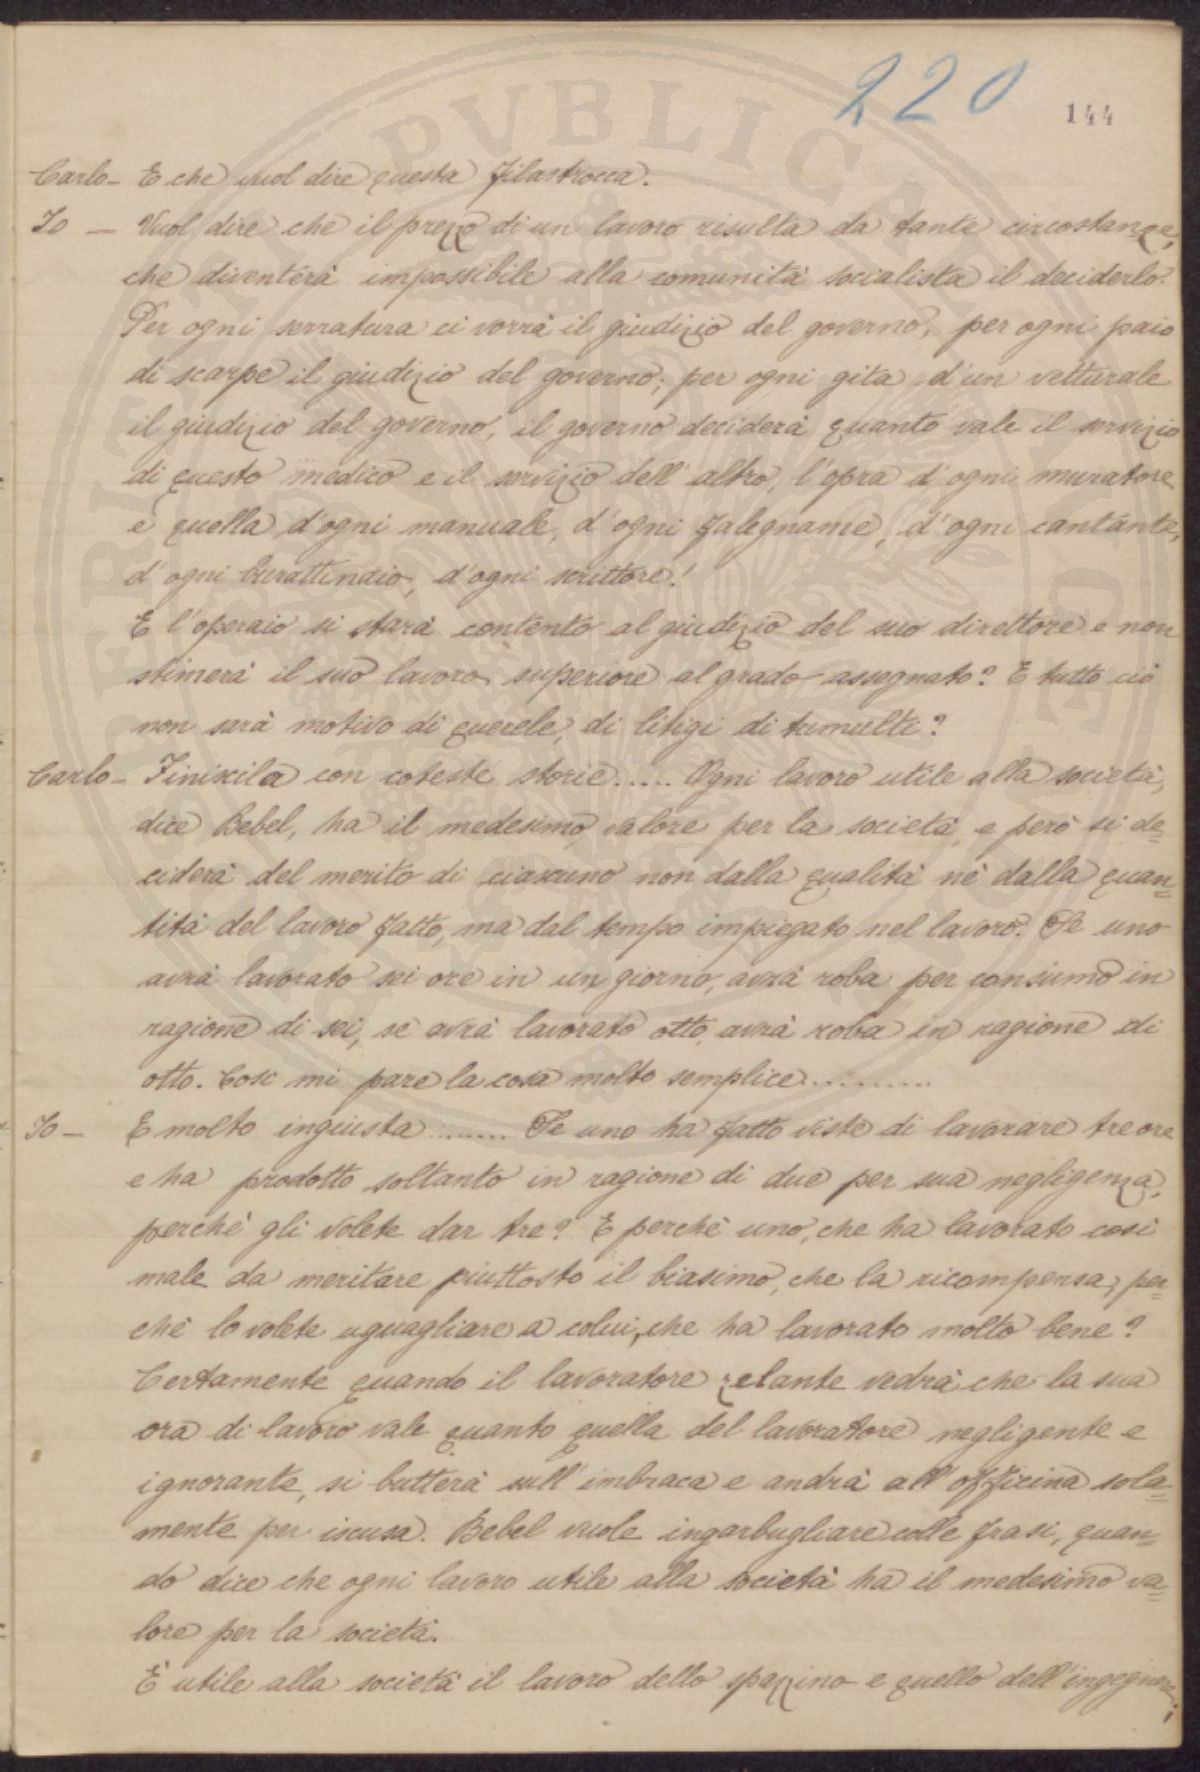 220
144
Carlo - E che vuol dire questa filastrocca.
Io - Vuol dire che il prezzo di un lavoro risulta da tante circostanze,
che diventerà impossibile alla comunità socialista il deciderlo.
Per ogni serratura ci vorrà il giudizio del governo, per ogni paio
di scarpe il giudizio del governo; per ogni gita d'un vetturale
il giudizio del governo, il governo deciderà quanto vale il servizio
di questo medico e il servizio dell'altro, l'opra d'ogni muratore
e quella d'ogni manuale, d'ogni falegname, d'ogni cantante,
d'ogni burattinaio, d'ogni scrittore!
E l'operaio si starà contento al giudizio del suo direttore e non
stimerà il suo lavoro superiore al grado assegnato? E tutto ciò
non sarà motivo di querele, di litigi di tumulti?
Carlo - Finiscila con coteste storie..... Ogni lavoro utile alla società,
dice Bebel, ha il medesimo valore per la società, e però si de=
ciderà del merito di ciascuno non dalla qualità nè dalla quan=
tità del lavoro fatto, ma dal tempo impiegato nel lavoro. Se uno
avrà lavorato sei ore in un giorno, avrà roba per consumo in
ragione di sei, se avrà lavorato otto, avrà roba in ragione di
otto. Così mi pare la cosa molto semplice..........
Io - E molto ingiusta ....... Se uno ha fatto viste di lavorare tre ore
e ha prodotto soltanto in ragione di due per sua negligenza,
perchè gli volete dar tre? E perchè uno, che ha lavorato così
male da meritare piuttosto il biasimo, che la ricompensa, per=
chè lo volete uguagliare a colui, che ha lavorato molto bene?
Certamente quando il lavoratore zelante vedrà che la sua
ora di lavoro vale quanto quella del lavoratore negligente e
ignorante, si butterà sull'imbraca e andrà all'officina sola=
mente per iscusa. Bebel vuole ingarbugliare colle frasi, quan=
do dice che ogni lavoro utile alla società ha il medesimo va=
lore per la società.
È utile alla società il lavoro dello spazzino e quello dell'ingegnere;